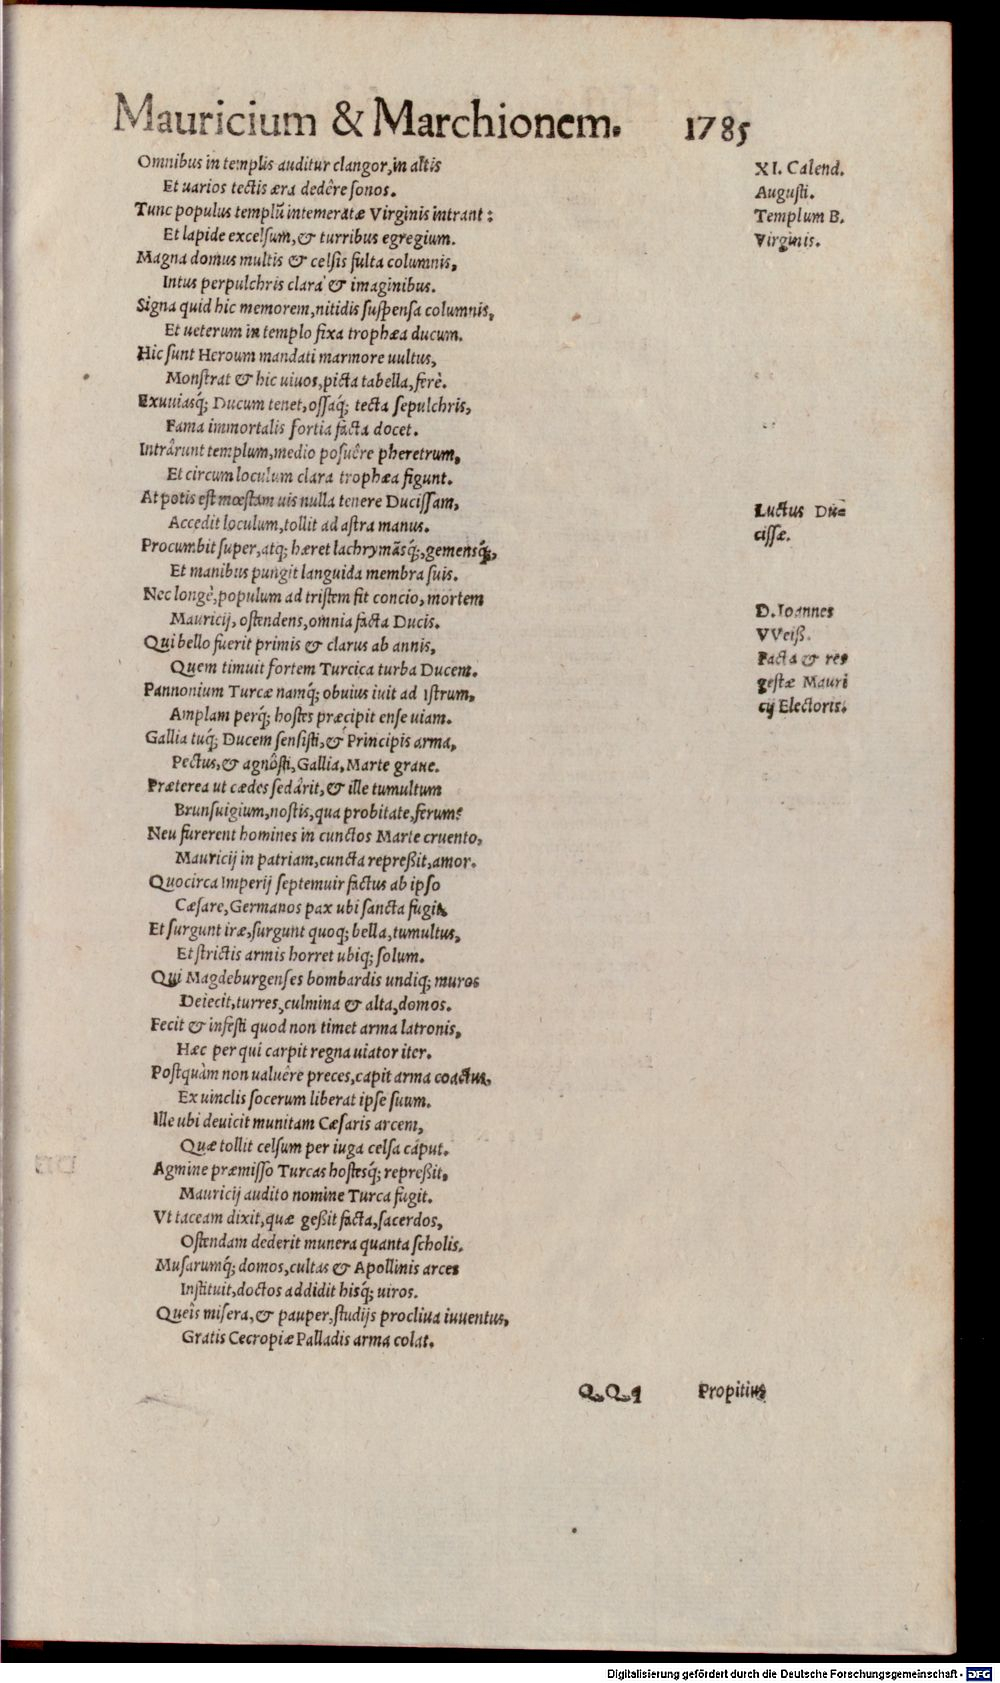 Mauricium & Marchionem. 1785
Omnibus in templis auditur clangor, in altis
Et uarios tectis æra dedêre ſonos.
Tunc populus templū intemeratæ Virginis intrant:
Et lapide excelſum, & turribus egregium.
Magna domus multis & celſis fulta columnis,
Intus perpulchris clara & imaginibus.
Signa quid hic memorem, nitidis ſuſpenſa columnis,
Et ueterum in templo fixa trophæa ducum.
Hic ſunt Heroum mandati marmore uultus,
Monſtrat & hic uiuos, picta tabella, ferè.
Exuuiasq́; Ducum tenet, oſſaq́; tecta ſepulchris,
Fama immortalis fortia facta docet.
Intrârunt templum, medio poſuêre pheretrum,
Et circum loculum clara trophæa figunt.
At potis eſt mœstam uis nulla tenere Duciſſam,
Accedit loculum, tollit ad aſtra manus.
Procumbit ſuper, atq; hæret lachrymãsq́;, gemensq́;,
Et manibus pungit languida membra ſuis.
Nec longè, populum ad triſtem fit concio, mortem
Mauricij, oſtendens, omnia facta Ducis.
Qui bello fuerit primis & clarus ab annis,
Quem timuit fortem Turcica turba Ducem.
Pannonium Turcæ namq́; obuius iuit ad Iſtrum,
Amplam perq́; hoſtes præcipit enſe uiam.
Gallia tuq́; Ducem ſenſiſti, & Principis arma,
Pectus, & agnôſti, Gallia, Marte graue.
Præterea ut cædes ſedârit, & ille tumultum
Brunſuigium, noſtis, qua probitate, ferum?
Neu furerent homines in cunctos Marte cruento,
Mauricij in patriam, cuncta repreßit, amor.
Quocirca Imperij ſeptemuir factus ab ipſo
Cæſare, Germanos pax ubi ſancta fugit,
Et ſurgunt iræ, ſurgunt quoq; bella, tumultus,
Et ſtrictis armis horret ubiq; ſolum.
Qui Magdeburgenſes bombardis undiq; muros
Deiecit, turres, culmina & alta, domos.
Fecit & infeſti quod non timet arma latronis,
Hæc per qui carpit regna uiator iter.
Poſtquàm non ualuêre preces, capit arma coactus,
Ex uinclis ſocerum liberat ipſe ſuum.
Ille ubi deuicit munitam Cæſaris arcem,
Quæ tollit celſum per iuga celſa caput.
Agmine præmiſſo Turcas hoſtesq́; repreßit,
Mauricij audito nomine Turca fugit.
Vt taceam dixit, quæ geßit facta, ſacerdos,
Oſtendam dederit munera quanta ſcholis.
Muſarumq́; domos, cultas & Apollinis arces
Inſtituit, doctos addidit hisq́; uiros.
Queîs miſera, & pauper, ſtudijs procliua iuuentus,
Gratis Cecropiæ Palladis arma colat.
XI. Calend.
Auguſti.
Templum B.
Virginis.
Luctus Du=
ciſſæ.
D. Ioannes
VVeiß.
Facta & res
geſtæ Mauri
cij Electoris.
QQ 1 Propitius
Digitalisierung gefördert durch die Deutsche Forschungsgemeinschaft - DFG